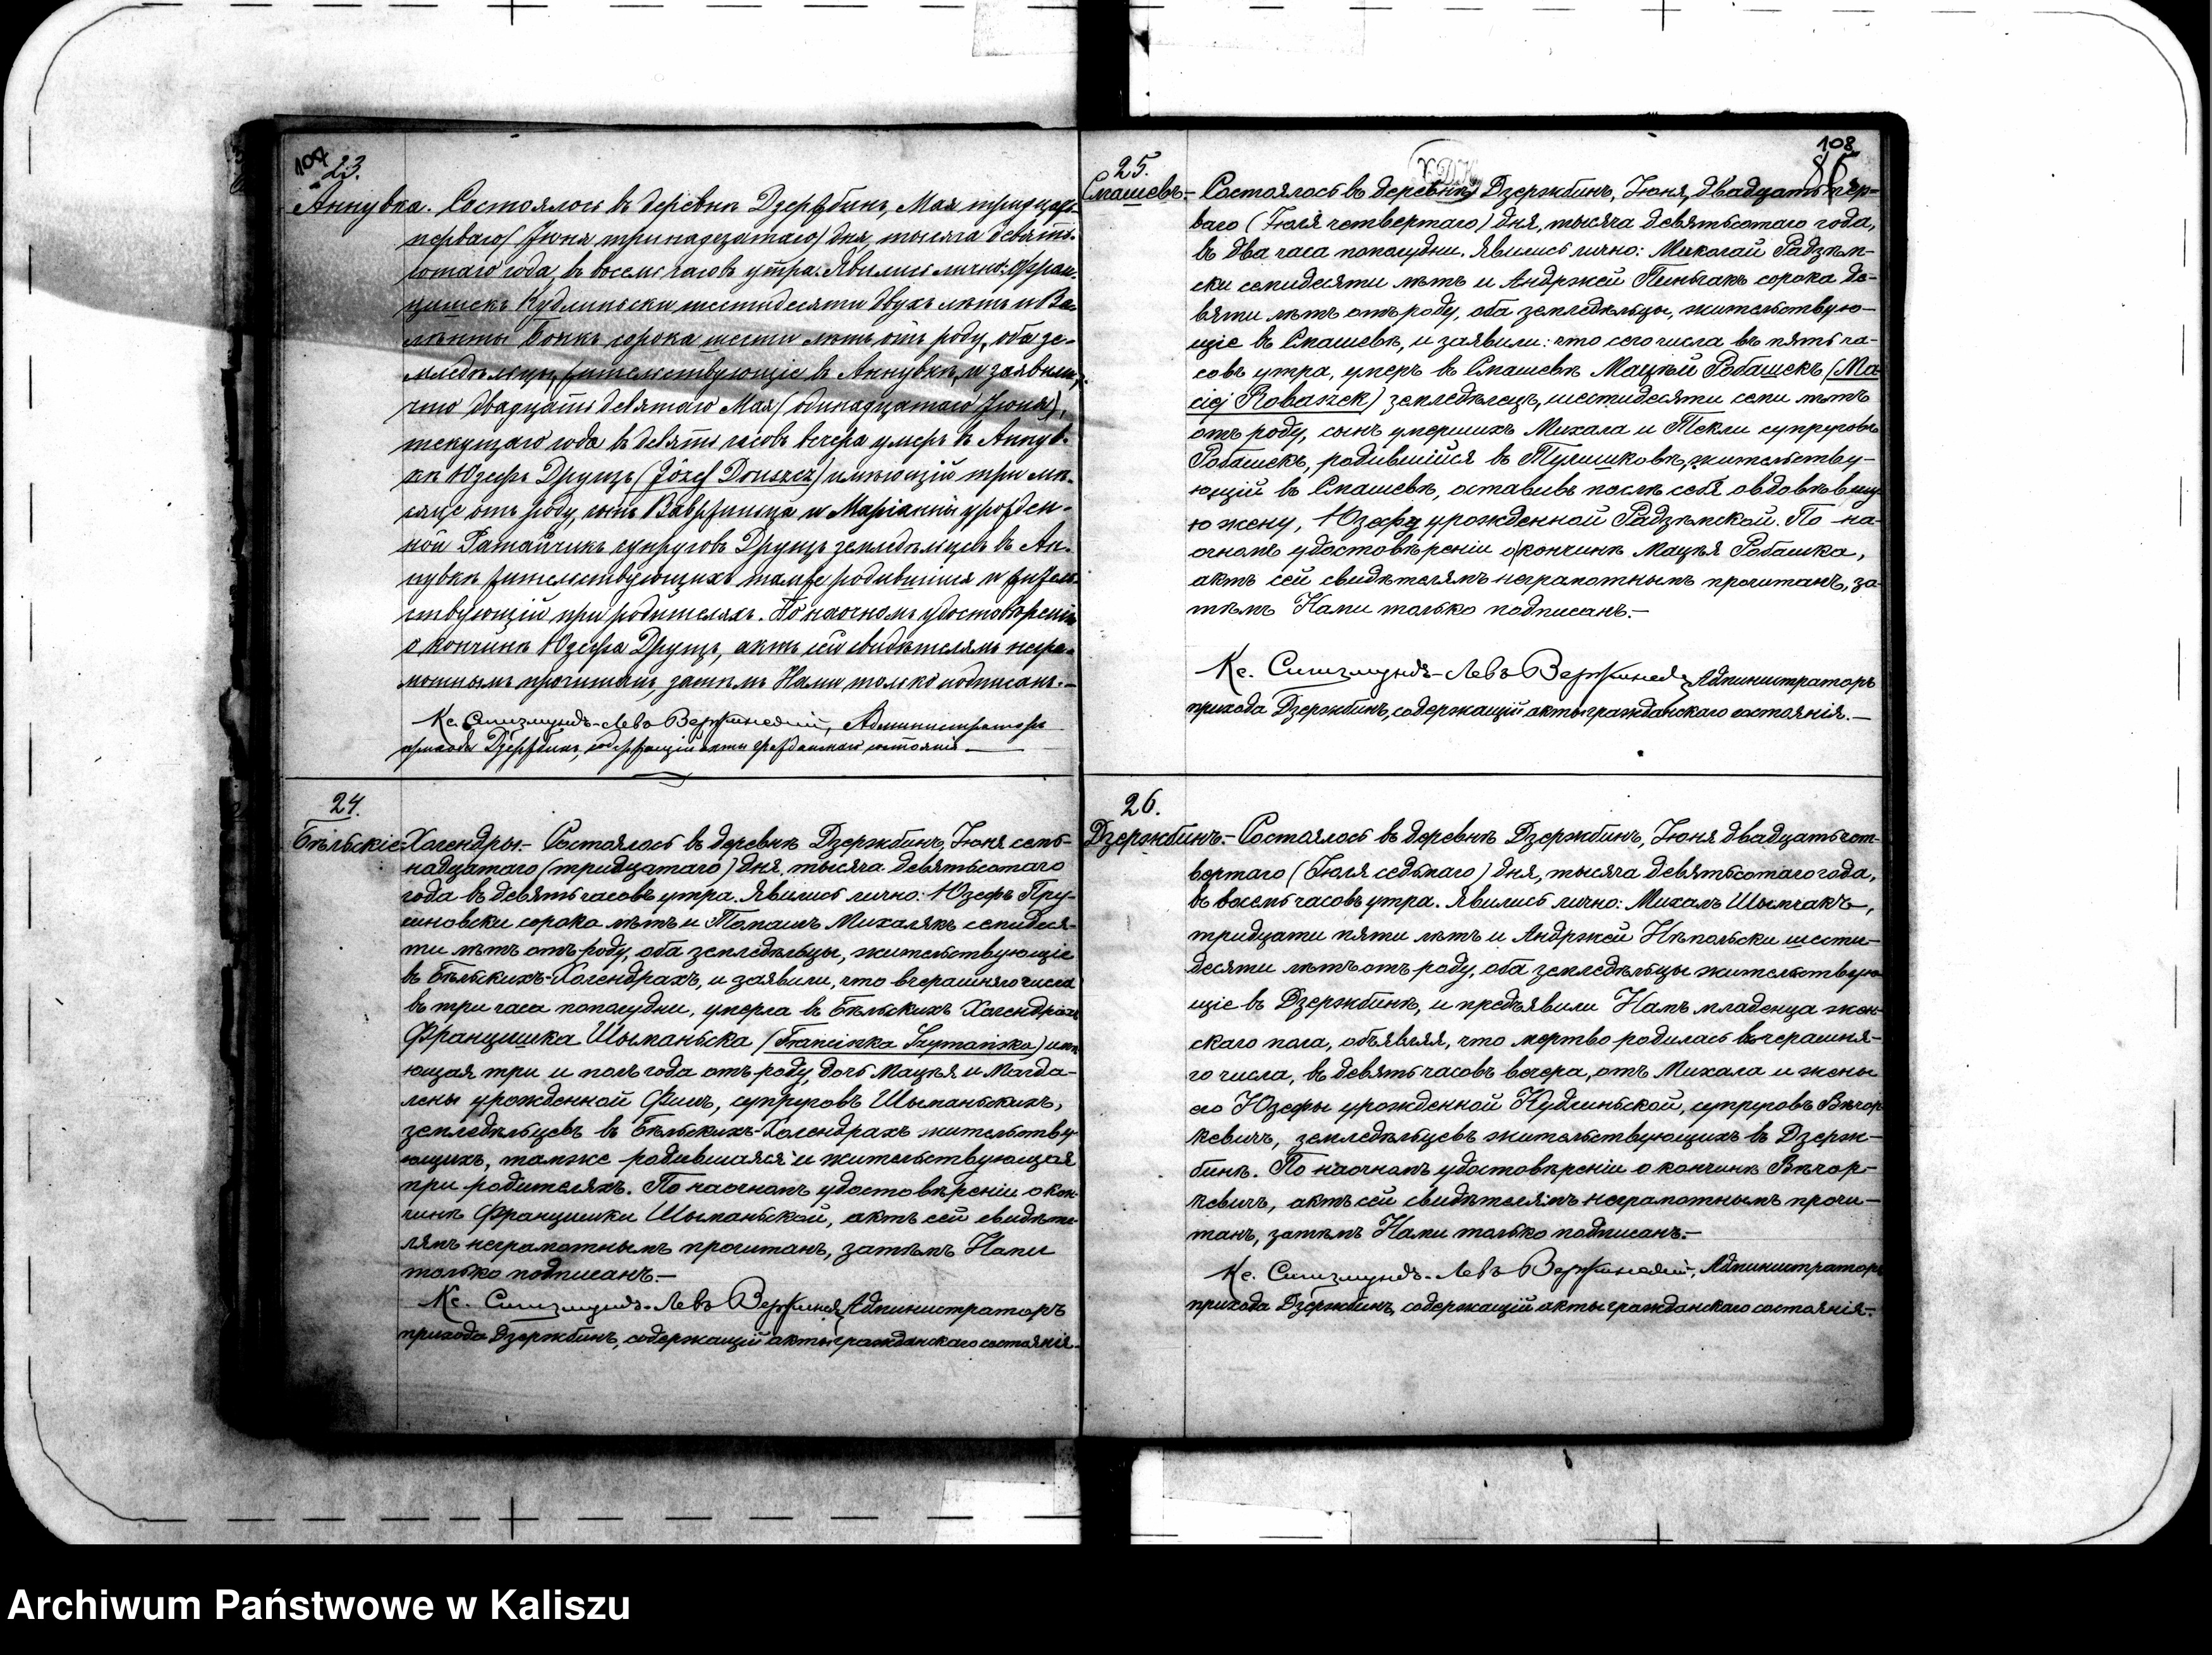 107
23.
Аннувка. Состоялось въ деревнѣ Дзержбинъ, Мая тридцать
перваго (Іюня тринадцатаго) дня, тысяча девять-
сотаго года, въ восемь часовъ утра. Явились лично: Фран-
цишекъ Кудлиньски шестидесяти двухъ лѣтъ и Ва-
лѣнты сорока шести лѣтъ отъ роду, оба зе-
мледѣльцы, жительствующіе въ Аннувкѣ, и заявили,
что двадцать девятаго Мая (одинадцатаго Іюня),
текущаго года въ девять часовъ вечера умеръ въ Аннув-
кѣ Юзефъ Друщъ (Józef Druszcz) имѣющій три мѣ-
сяце отъ роду, сынъ Вавржинца и Маріанны урожден-
ной Ратайчикъ супруговъ Друщъ земледѣльцевъ въ Ан-
нувкѣ жительствующихъ тамже родившійся и житель-
ствующій при родителяхъ. По наочномъ удостовѣреніи
о кончинѣ Юзефа Друща, актъ сей свидѣтелямъ негра-
мотнымъ прочитанъ, затѣмъ Нами только подписанъ.-
Кс. Сигизмундъ-Левъ Вержинскій, Администраторъ
прихода Дзержбинъ, содержащій акты гражданскаго состоянія.
24.
Бѣльскіе-Холендры.- Состоялось въ деревнѣ Дзержбинъ, Іюня сем-
надцатаго (тридцатаго) дня, тысяча девятьсотаго
года въ девять часовъ утра. Явились лично: Юзефъ Пру-
синовски сорока лѣтъ и Томашъ Михалякъ семидеся-
ти лѣтъ отъ роду, оба земледѣльцы, жительствующіе
въ Бѣльскихъ-Холендрахъ, и заявили, что вчерашняго числа
въ три часа пополудни, умерла въ Бѣльскихъ Холендрахъ
Францишка Шыманьска (Franciszka Szymańska) имѣ-
ющая три и полъ года отъ роду, дочь Мацѣя и Магда-
лены урожденной Фишъ, супруговъ Шыманьскихъ,
земледѣльцевъ въ Бѣльскихъ-Холендрахъ жительству-
ющихъ, тамже родившаяся и жительствующая
при родителяхъ. По наочномъ удостовѣреніи о кон-
чинѣ Францишки Шыманьской, актъ сей свидѣте-
лямъ неграмотнымъ прочитанъ, затѣмъ Нами
только подписанъ.-
Кс. Сигизмундъ-Левъ Вержинскій, Администраторъ
прихода Дзержбинъ, содержащій акты гражданскаго состоянія.
108
86
25.
Смашевъ.- Состоялось въ деревнѣ Дзержбинъ, Іюня, двадцать пер-
ваго (Іюля четвертаго) дня, тысяча девятьсотаго года,
въ два часа пополудни. Явились лично: Миколай Радзѣм-
ски семидесяти лѣтъ и Андржей Пеньчакъ сорока де-
вяти лѣтъ отъ роду, оба земледѣльцы, жительствую-
щіе въ Смашевѣ, и заявили: что сего числа въ пять ча-
совъ утра, умеръ въ Смашевѣ Мацѣй Робашекъ (Ma-
ciej Robaszek) земледѣлецъ, шестидесяти семи лѣтъ
отъ роду, сынъ умершихъ Михала и Текли супруговъ
Робашекъ, родившійся въ Тулишковѣ, жительству-
ющій въ Смашевѣ, оставивъ послѣ себя овдовѣвшу-
ю жену, Юзефу урожденной Радзѣмской. По на-
очномъ удостовѣреніи о кончинѣ Мацѣя Робашка,
актъ сей свидѣтелямъ неграмотнымъ прочитанъ, за-
тѣмъ Нами только подписанъ.-
Кс. Сигизмундъ-Левъ Вержинскій, Администраторъ
прихода Дзержбинъ, содержащій акты гражданскаго состоянія.-
26.
Дзержбинъ.- Состоялось въ деревнѣ Дзержбинъ, Іюня двадцать чет-
вертаго (Іюля седьмаго) дня, тысяча девятьсотаго года,
въ восемь часовъ утра. Явились лично: Михалъ Шымчакъ,
тридцати пяти лѣтъ и Андржей Нѣпольски шести-
десяти лѣтъ отъ роду, оба земледѣльцы жительствую-
щіе въ Дзержбинѣ, и предъявили Намъ младенца жен-
скаго пола, объявляя, что мертво родилась вчерашня-
го числа, въ девять часовъ вечера, отъ Михала и жены
его Юзефы урожденной Кудлиньской, супруговъ Вѣчор-
кевичъ, земледѣльцевъ жительствующихъ въ Дзерж-
бинѣ. По наочномъ удостовѣреніи о кончинѣ Вѣчор-
кевичъ, актъ сей свидѣтелямъ неграмотнымъ прочи-
танъ, затѣмъ Нами только подписанъ.-
Кс. Сигизмундъ-Левъ Вержинскій, Администраторъ
прихода Дзержбинъ, содержащій акты гражданскаго состоянія.-
Archiwum Państwowe w Kaliszu